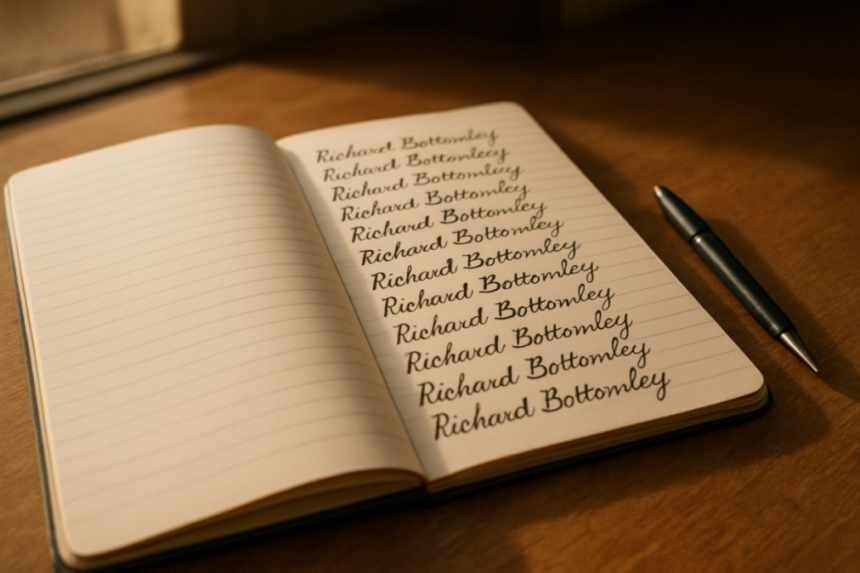 Richard Bottomley
Richard Bottomley
Richard Bottomley
Richard Bottomley
Richard Bottomley
Richard Bottomley
Richard Bottomley
Richard Bottomley
Richard Bottomley
Richard Bottomley
Richard Bottomley
Richard Bottomley